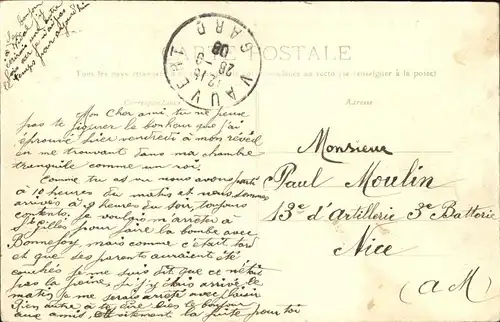 CARTE POSTALE
VAUVERT
GARD
28
08
Tous les pays
au recto (se renseigner à la poste)
Correspondance
Adresse
Mon Cher ami, tu ne peux
pas te figurer le bonheur que j'ai
éprouvé hier vendredi à mon réveil
en me trouvant dans ma chambre
tranquile comme un roi.
Comme tu as vu nous avons parti
à 10 heures du matin et nous sommes
arrivés à 9 heures du soir, toujours
contents. Je voulais m'arrêter à
St Gilles pour faire la bombe avec
Bonnefoy, mais comme c'était tard
et que ses parents auraient été
couchés je me suis dit que ce n'était
pas la peine, si j'y étais arrivé le
matin je me serais arrêté avec plaisir
Rien autre à te dire bien le bonjour
aux amis
la fuite pour toi
Monsieur
Paul Moulin
13e d'Artillerie 3e Batterie
Nice
(A M)